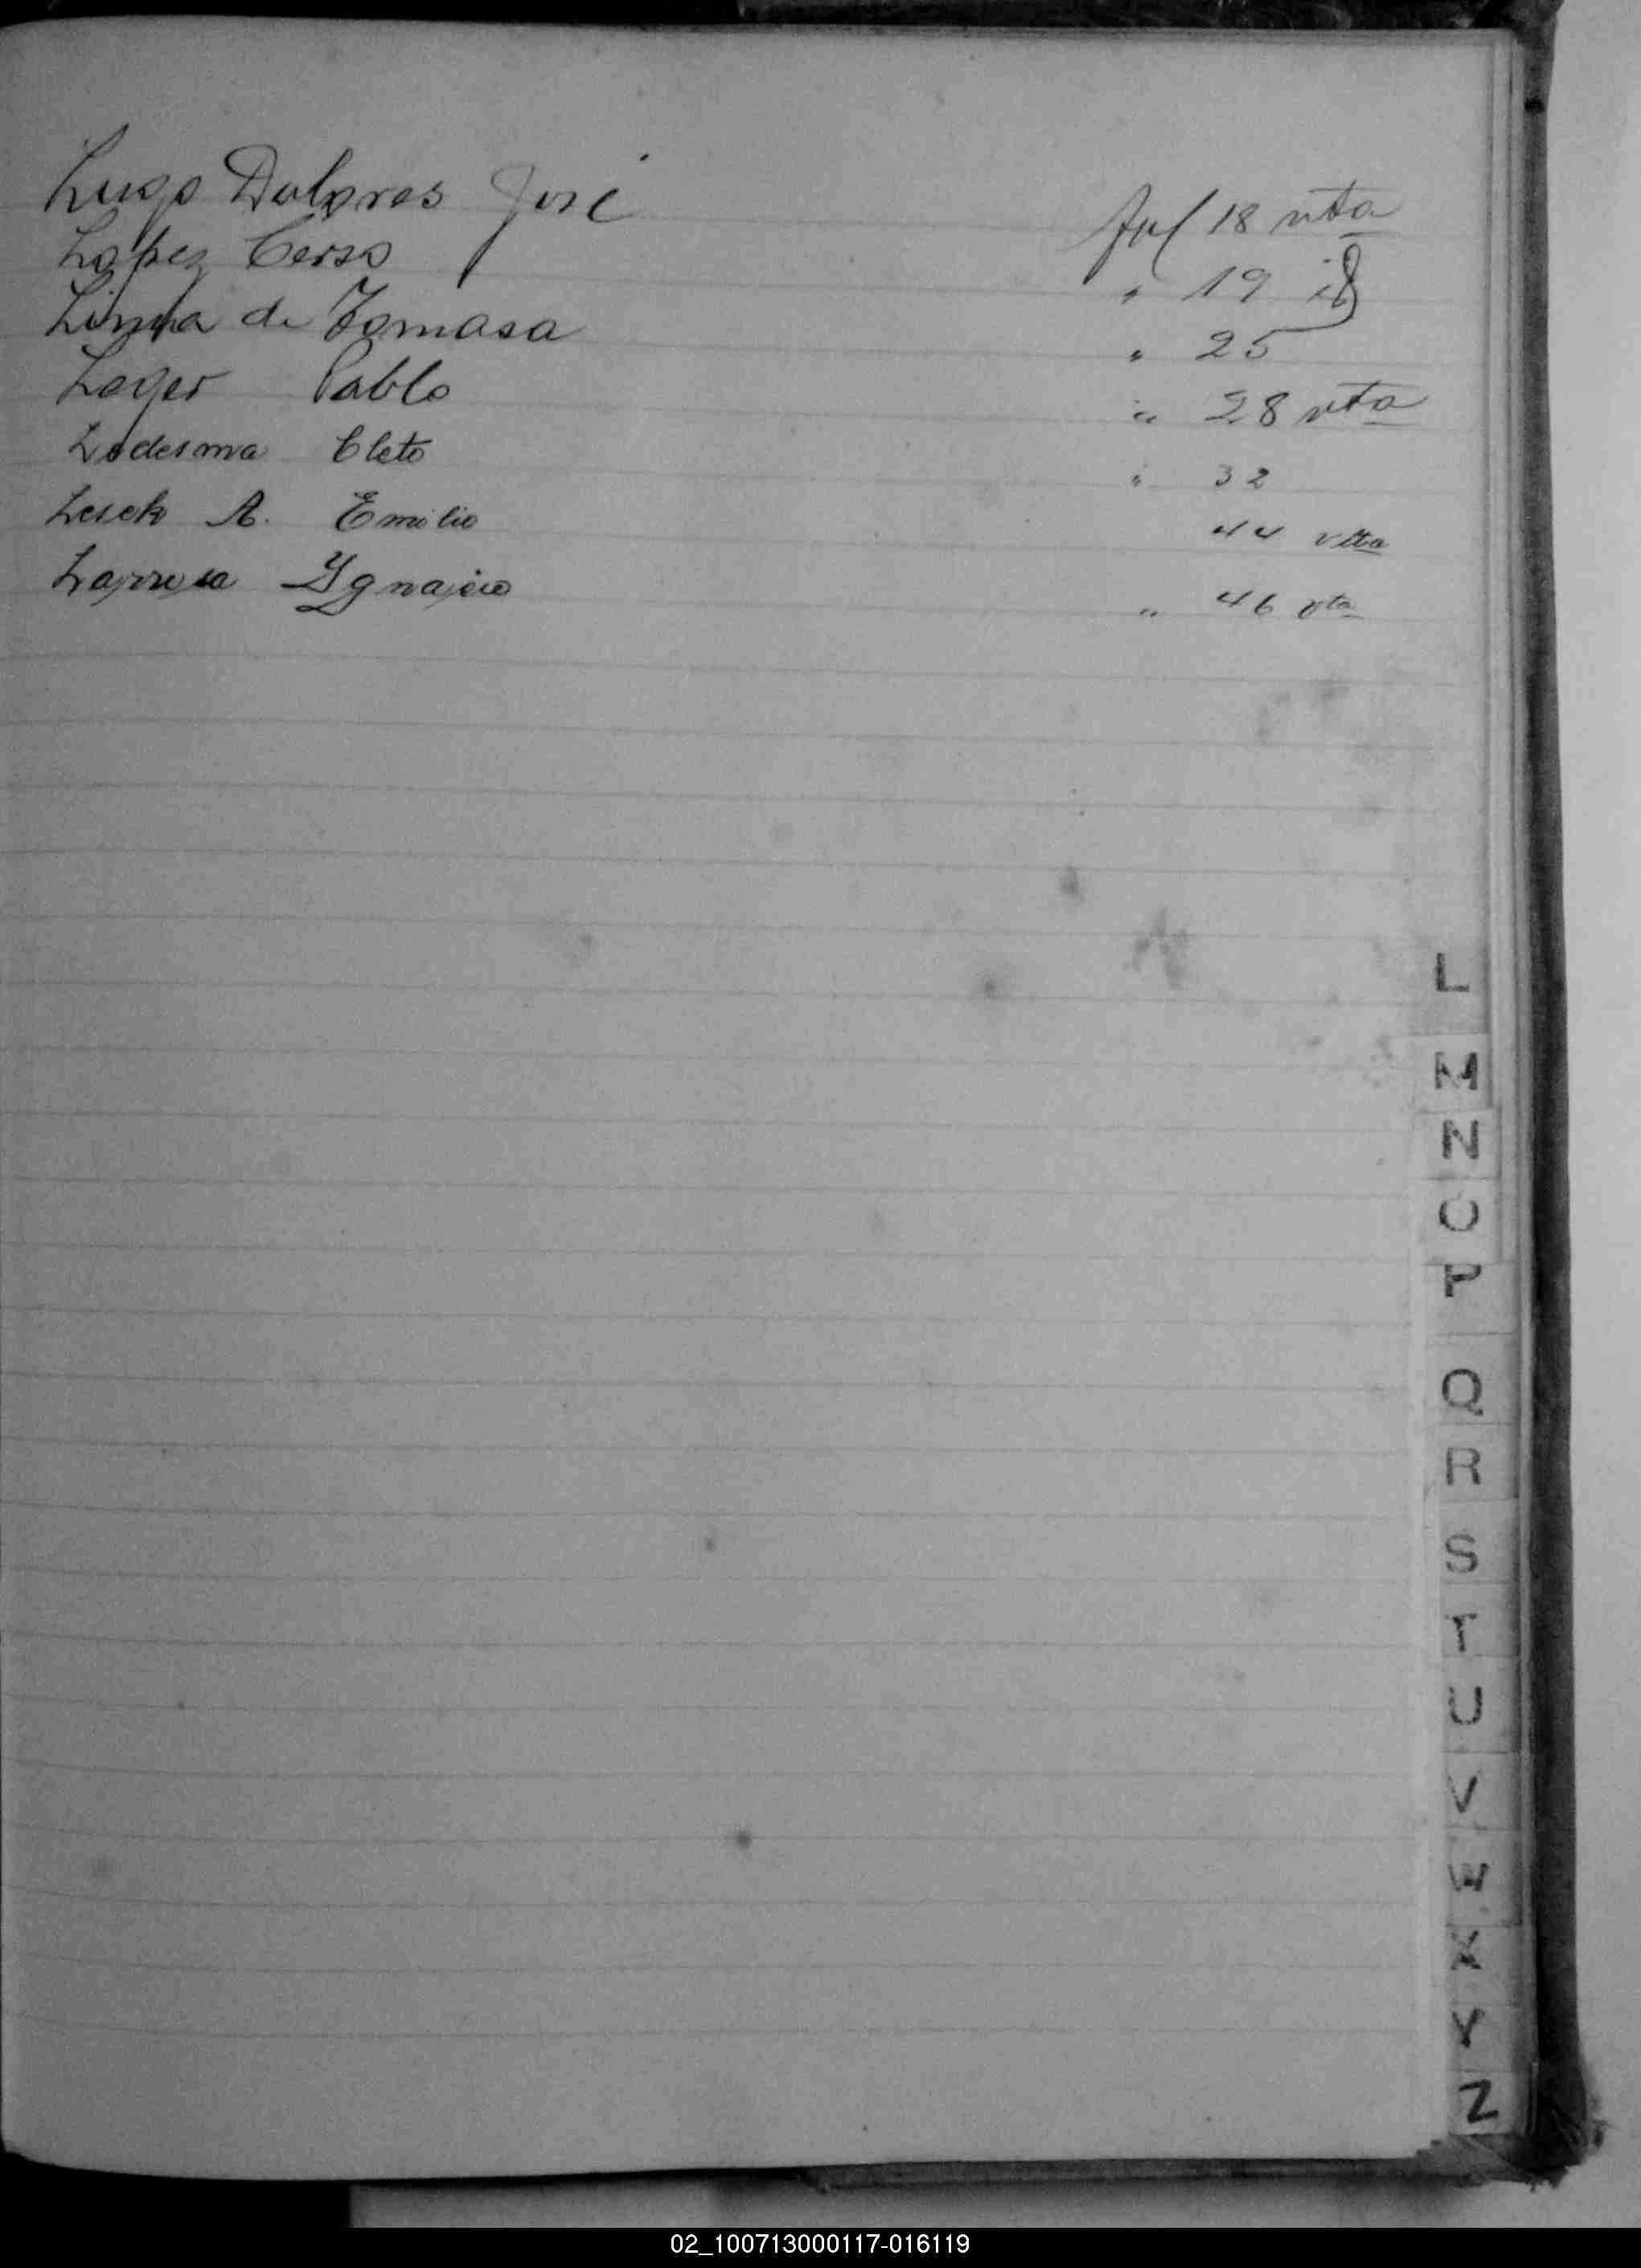 Lugo Dolores José Jul 18 vta
Lopez Cerso " 19 id
Linha de Tomasa " 25
Leyer Pablo " 28 vta
Ledesma Cleto " 32
Lesek A. Emilio 44 vtta
Larrosa Ygnacio " 46 vta
L
M
N
O
P
Q
R
S
T
U
V
W
X
Y
Z
02_100713000117-016119